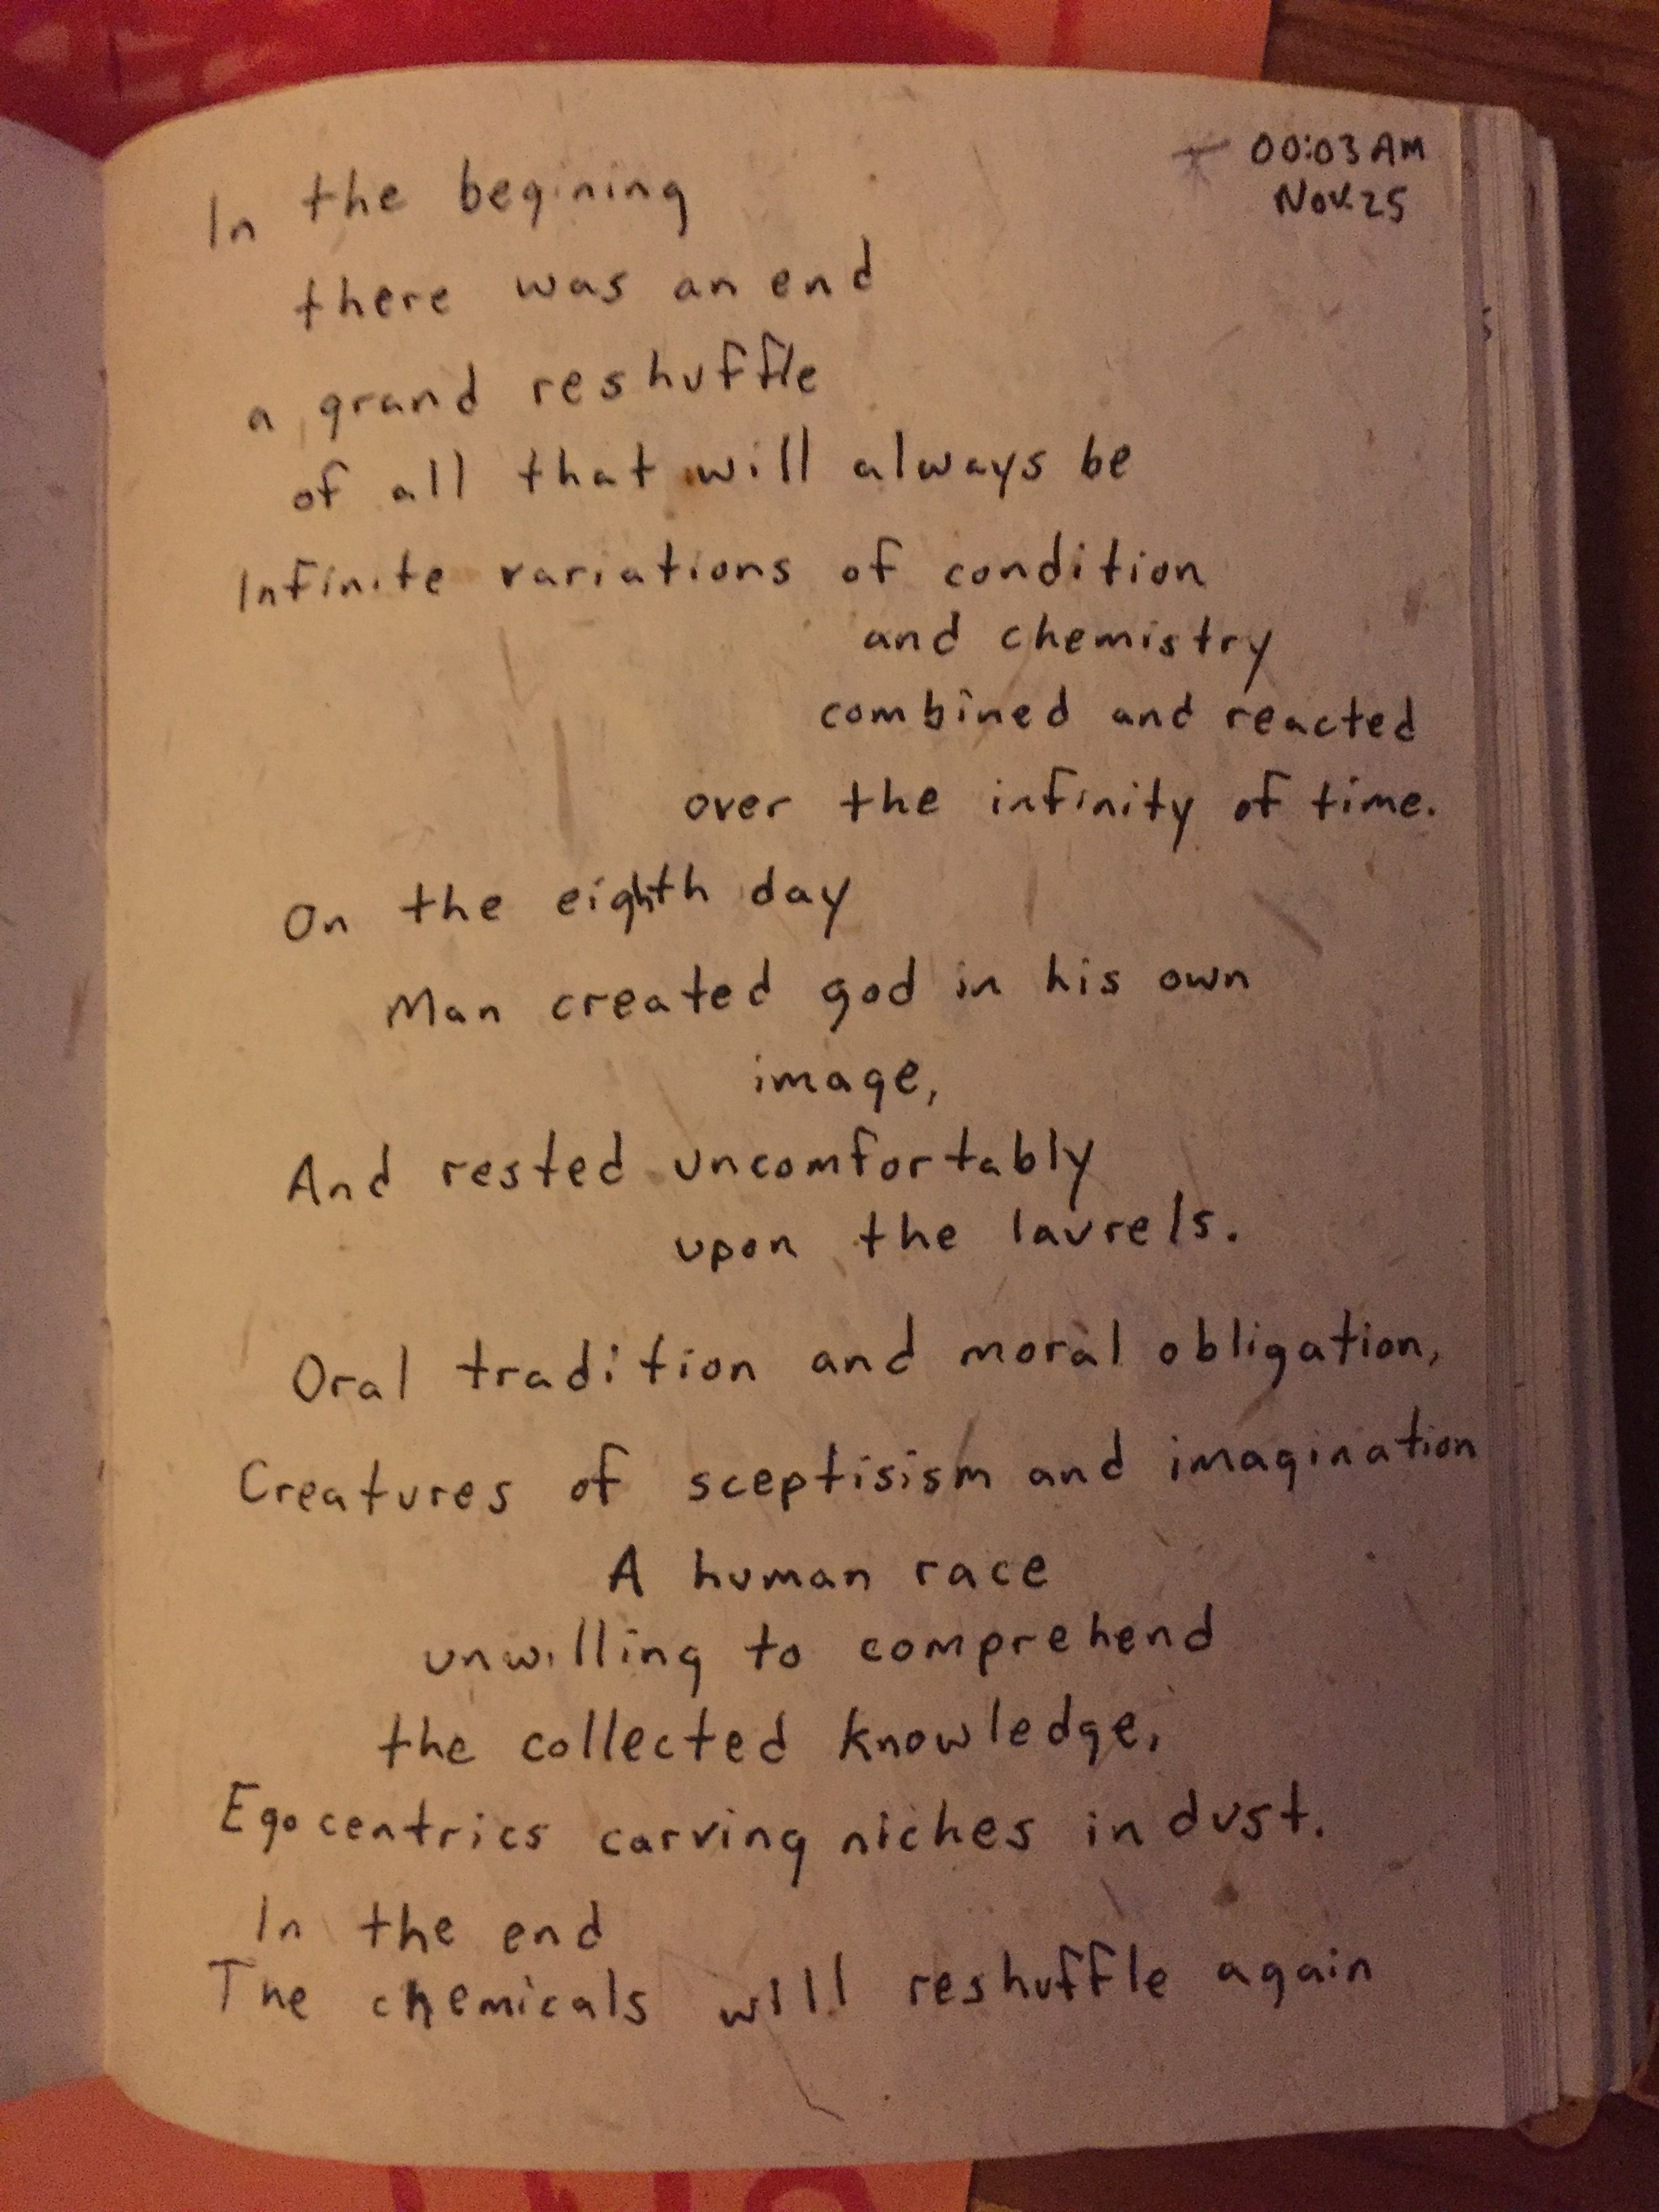 00:03 AM
Nov. 25
In the begining
there was an end
a grand reshuffle
of all that will always be
Infinite variations of condition
and chemistry
combined and reacted
over the infinity of time.
On the eighth day
Man created god in his own
image,
And rested uncomfortably
upon the laurels.
Oral tradition and moral obligation,
Creatures of sceptisism and imagination
A human race
unwilling to comprehend
the collected knowledge,
Egocentrics carving niches in dust.
In the end
The chemicals will reshuffle again